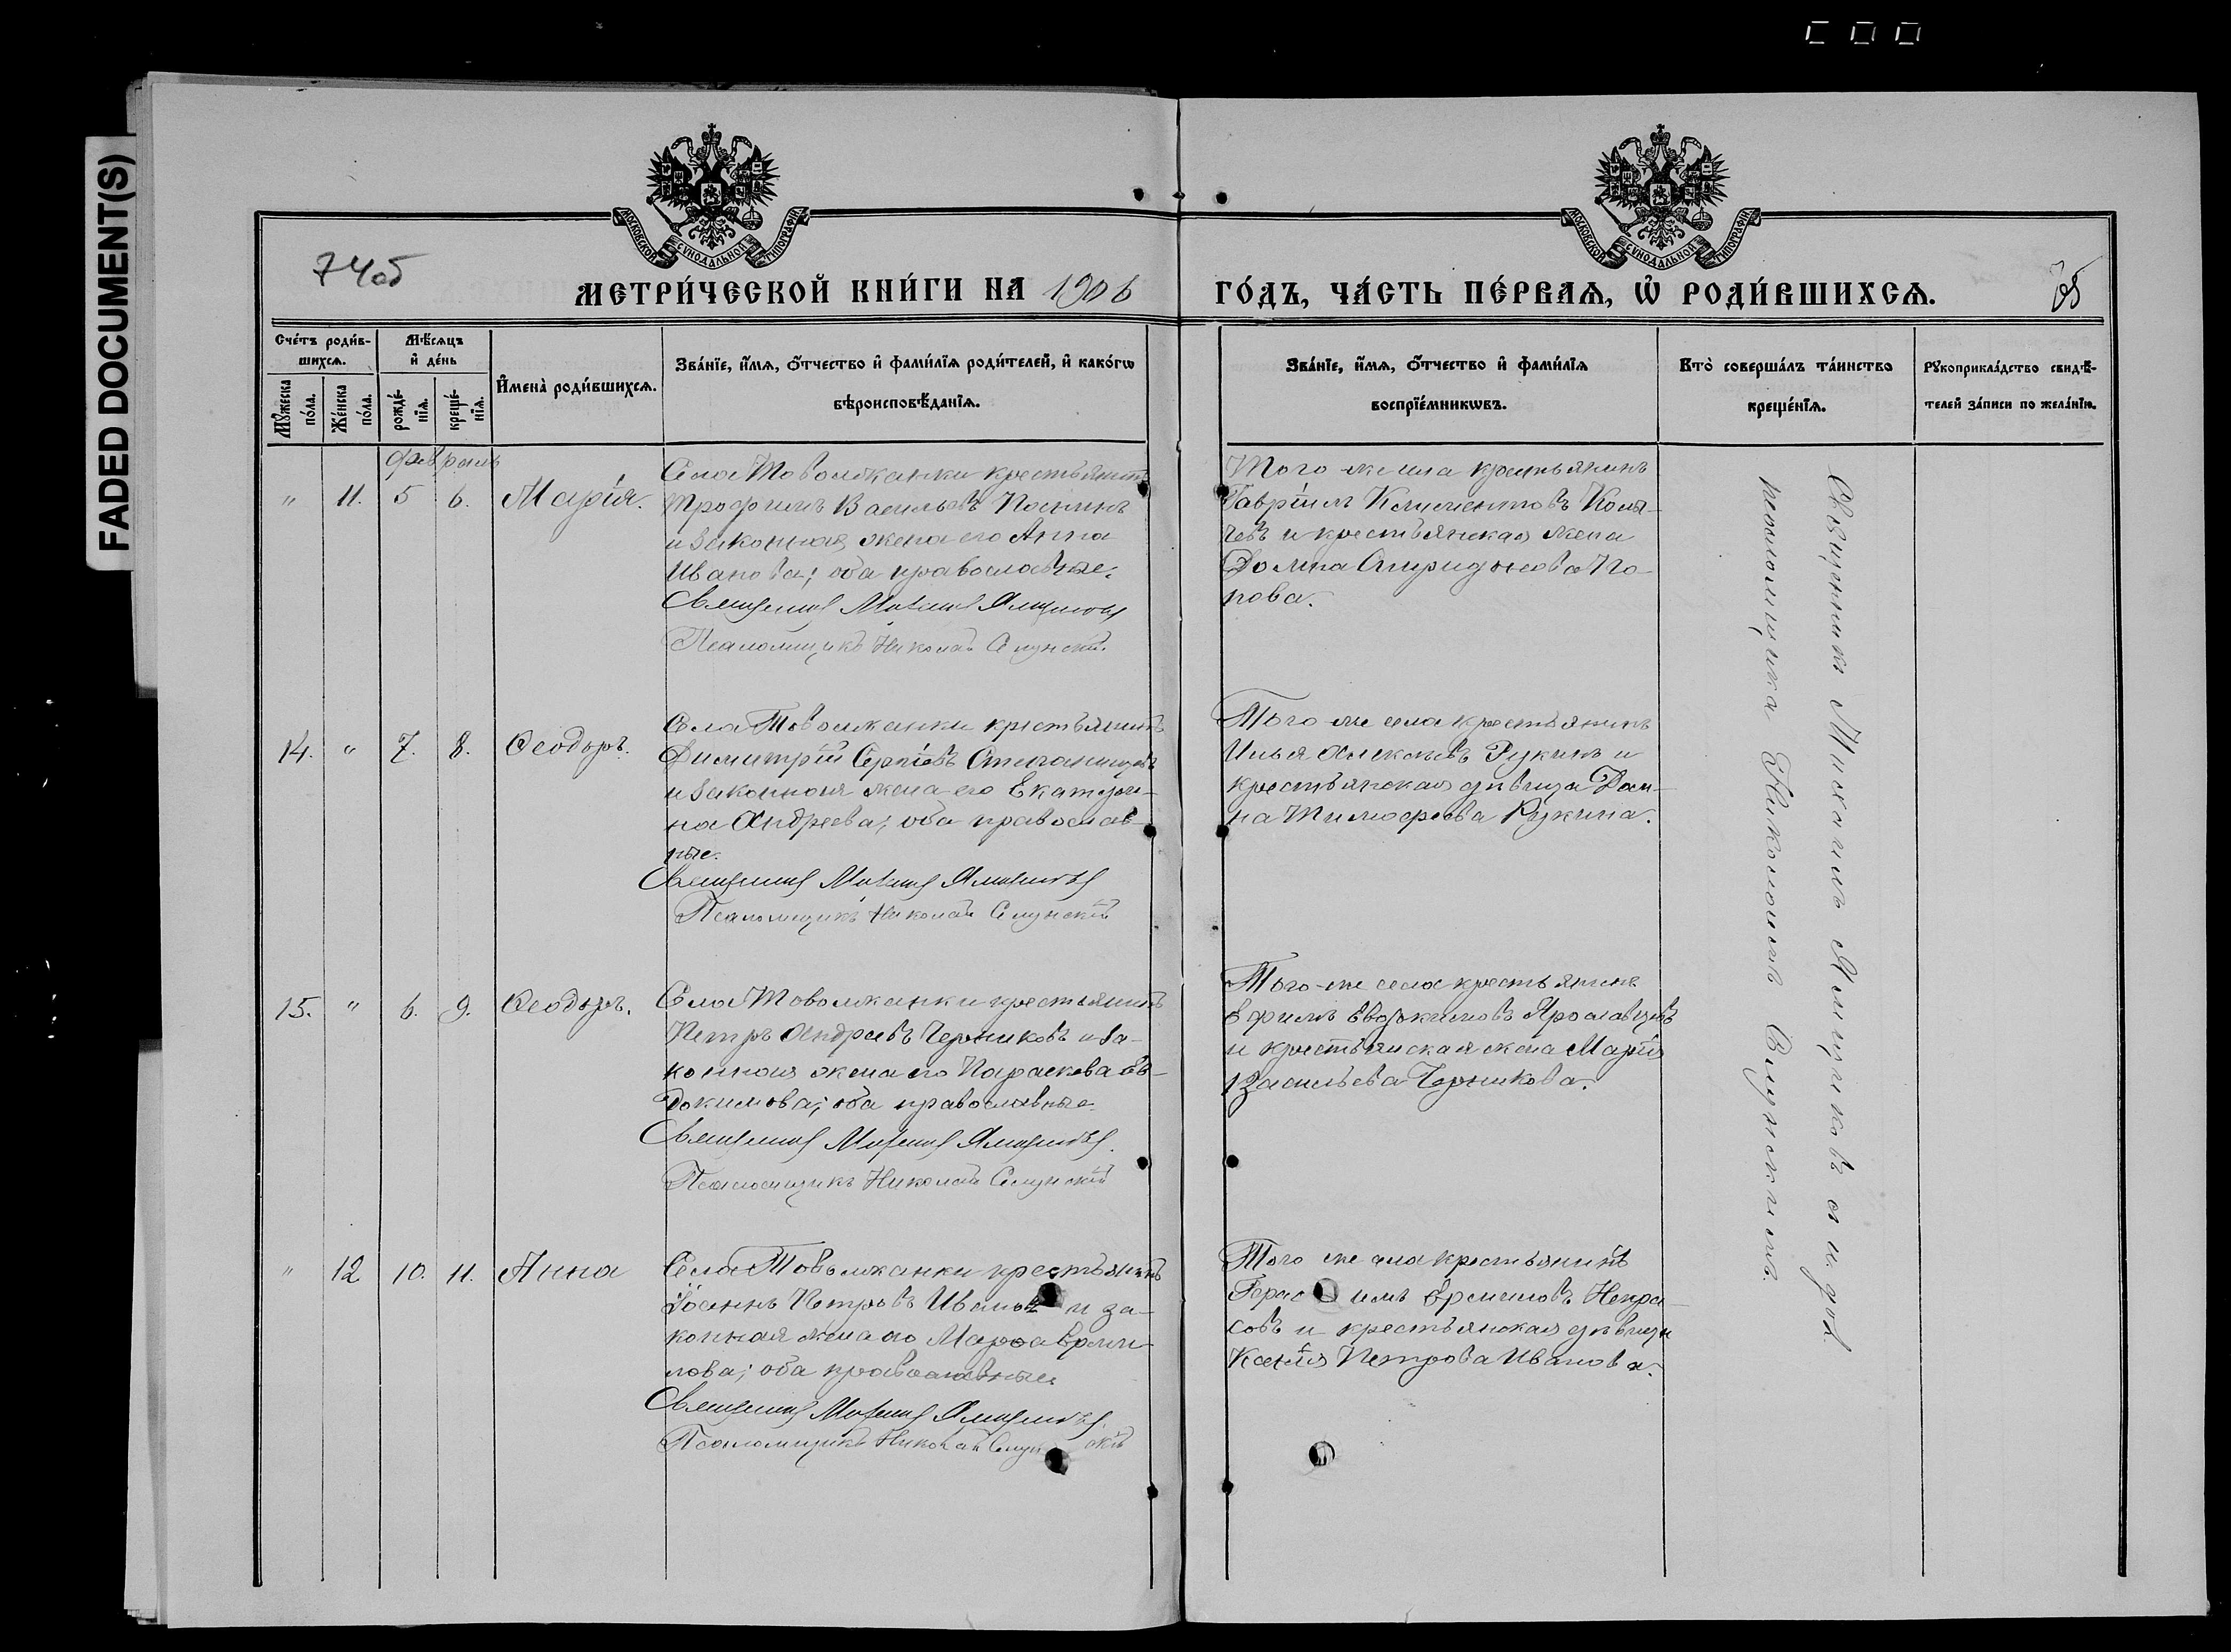 FADED DOCUMENT(S)
МОСКОВСКОЙ СѴНОДАЛЬНОЙ ТИПОГРАФІИ
МОСКОВСКОЙ СѴНОДАЛЬНОЙ ТИПОГРАФІИ
74об
МЕТРИ́ЧЕСКОЙ КНИ́ГИ НА 1906
ГО́ДЪ, ЧА́СТЬ ПЕ́РВАѦ, Ѡ҆ РОДИ́ВШИХСѦ.
75
Сче́тъ роди́в-
шихсѧ.
Мѹ́жеска по́ла.
Же́нска по́ла.
Мѣ́сѧцъ
и҆ де́нь
рожде́-
нїѧ.
креще́-
нїѧ.
И҆мена̀ роди́вшихсѧ.
Зва́нїе, и҆́мѧ, ѻ҆́тчество и҆ фами́лїѧ роди́телей, и҆ како́гѡ
вѣроисповѣ́данїѧ.
Зва́нїе, и҆́мѧ, ѻ҆́тчество и҆ фами́лїѧ
воспрїе́мникѡвъ.
Кто̀ соверша́лъ та́инство
креще́нїѧ.
Рѹкоприкла́дство свидѣ́-
телей за́писи по жела́нїю.
Февраль
" 11. 5 6. Марія.
Села Товолжанки крестьянинъ
Трофимъ Васильевъ
и законная жена его Анна
Иванова; оба православные.
Священникъ Михаилъ Ямщиковъ
Псаломщикъ Николай Слунскій
Того же села крестьянинъ
Гавріилъ Климентовъ Колы-
чевъ и крестьянская жена
Домна Спиридонова По-
пова.
14. " 7. 8. Ѳеодоръ.
Села Товолжанки крестьянинъ
Димитрій Сергіевъ
и законная жена его Екатери-
на Андреева; оба православ-
ные.
Священникъ Михаилъ Ямщиковъ
Псаломщикъ Николай Слунскій
Того же села крестьянинъ
Илья Алексѣевъ Рукинъ и
крестьянская дѣвица Дом-
на Тимофеева Рукина.
15. " 6. 9. Ѳеодоръ.
Села Товолжанки крестьянинъ
Петръ Андреевъ Черниковъ и за-
конная жена его Параскева Ев-
докимова; оба православные
Священникъ Михаилъ Ямщиковъ.
Псаломщикъ Николай Слунскій
Того-же села крестьянинъ
Ефимъ Евдокимовъ Ярославцевъ
и крестьянская жена Марія
Васильева Черникова.
" 12 10. 11. Анна
Села Товолжанки крестьянинъ
Іоаннъ Петровъ Ивановъ и за-
конная жена его Марѳа Ерми-
лова; оба православные.
Священникъ Михаилъ Ямщиковъ.
Псаломщикъ Николай Слунскій
Того же села крестьянинъ
Герасимъ Некра-
совъ и крестьянская дѣвица
Ксенія Петрова Иванова.
Священникъ Михаилъ Ямщиковъ
псаломщика Николаемъ Слунскимъ.